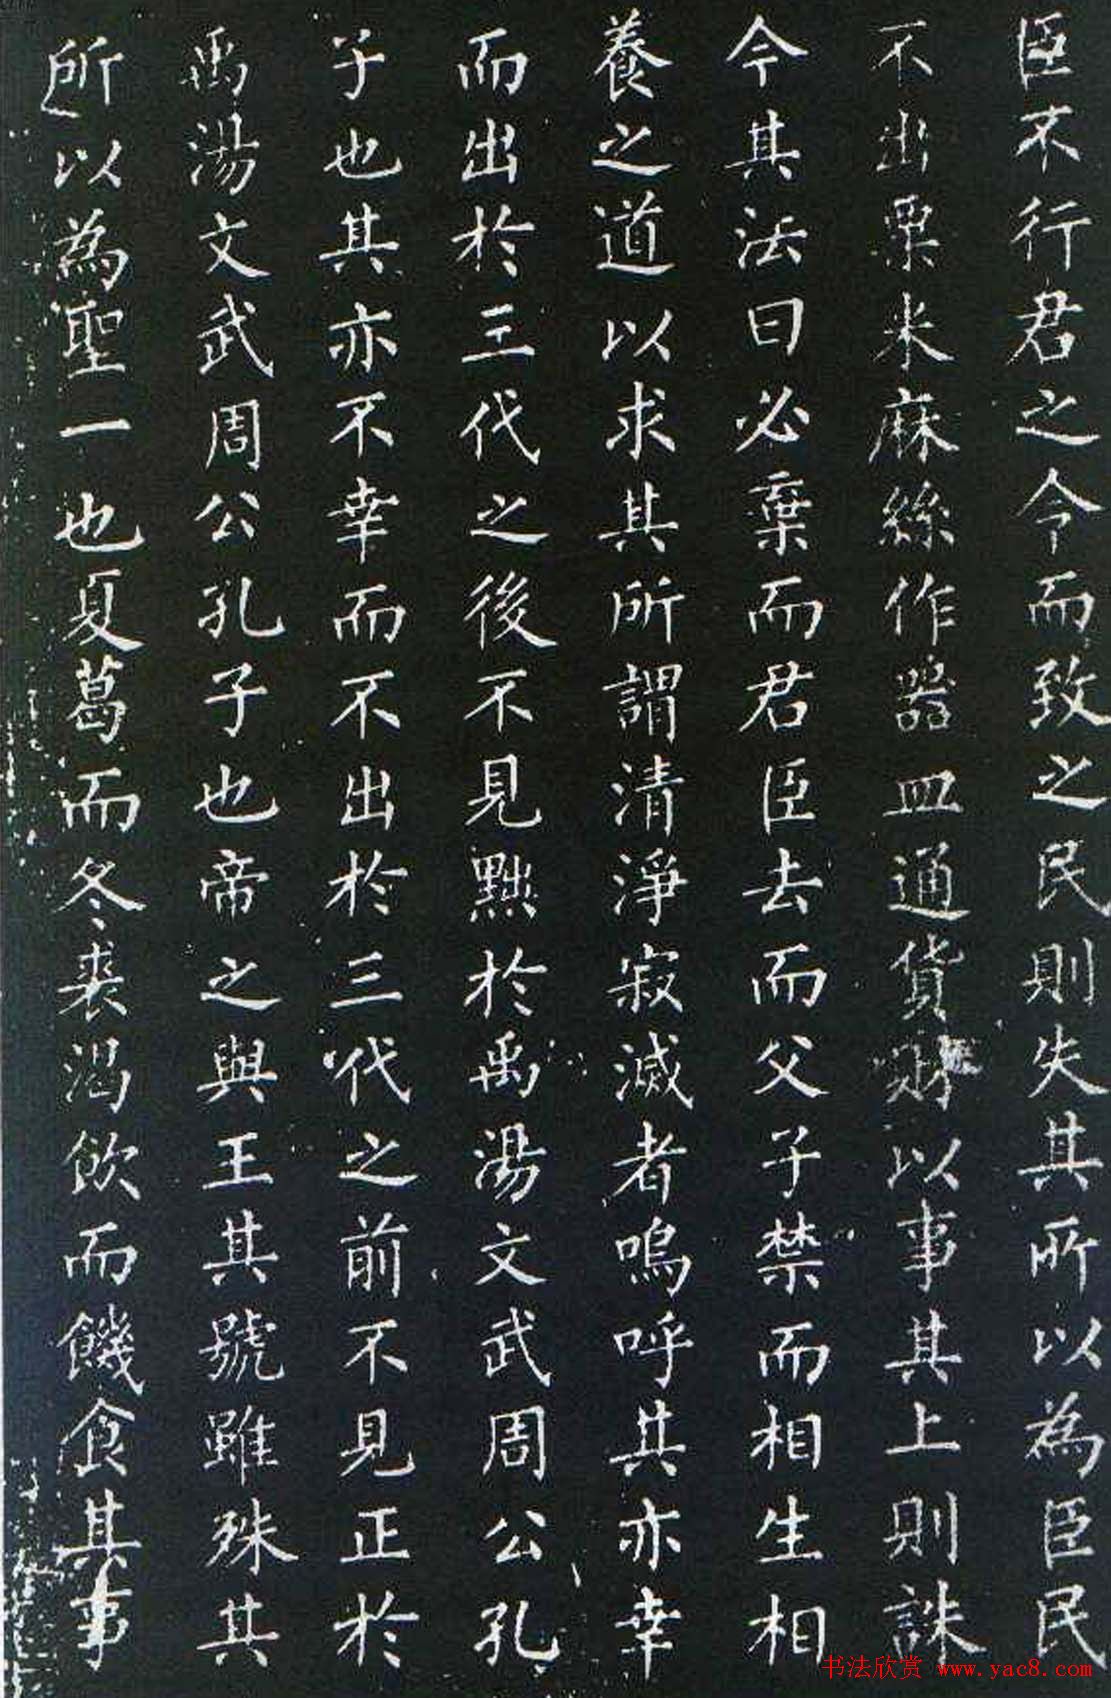 臣不行君之令而致之民則失其所以為臣民
不出粟米麻絲作器皿通貨財以事其上則誅
今其法曰必棄而君臣去而父子禁而相生相
養之道以求其所謂清淨寂滅者嗚呼其亦幸
而出於三代之後不見黜於禹湯文武周公孔
子也其亦不幸而不出於三代之前不見正於
禹湯文武周公孔子也帝之與王其號雖殊其
所以為聖一也夏葛而冬裘渴飲而饑食其事
书法欣赏 www.yac8.com